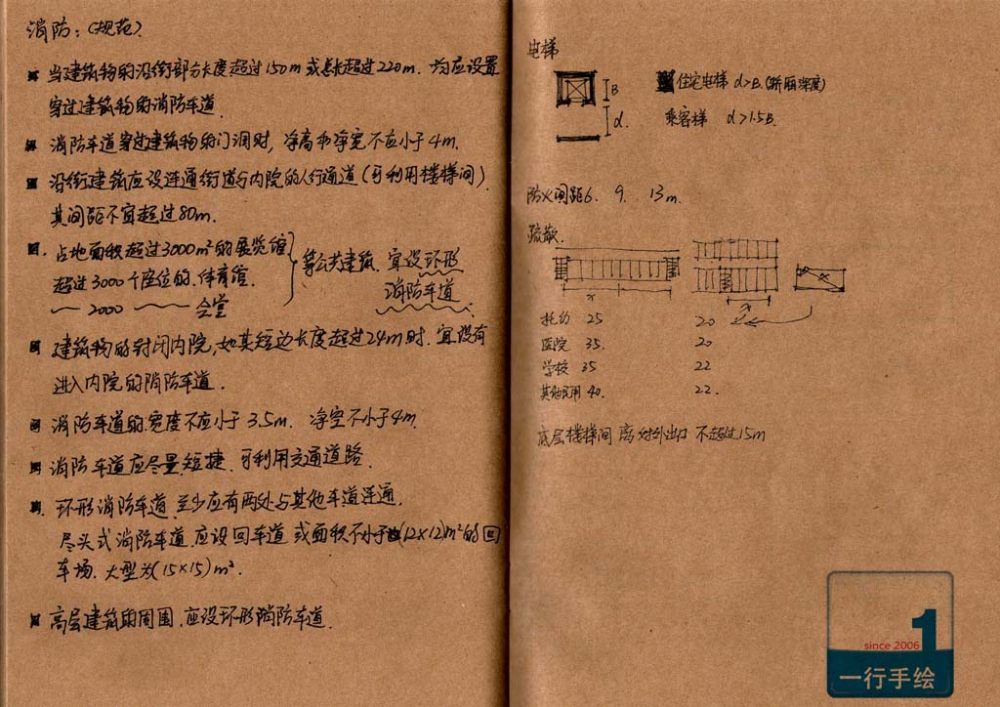 消防：（规范）
当建筑物的沿街部分长度超过150m或总长超过220m.均应设置
穿过建筑物的消防车道.
消防车道穿过建筑物的门洞时，净高和净宽不应小于4m.
沿街建筑应设连通街道与内院的人行通道（可利用楼梯间）
其间距不宜超过80m.
占地面积超过3000m²的展览馆
超过3000个座位的.体育馆.
2000 会堂
等公共建筑.宜设环形
消防车道.
建筑物的封闭内院,如其短边长度超过24m时.宜设有
进入内院的消防车道.
消防车道的宽度不应小于3.5m.净空不小于4m.
消防车道应尽量短捷.可利用交通道路.
环形消防车道至少应有两处与其他车道连通.
尽头式消防车道.应设回车道或面积不小于(12×12)m²的回
车场.大型为(15×15)m².
高层建筑的周围.应设环形消防车道.
电梯
B
d.
住宅电梯 d>B.(轿厢深度)
乘客梯 d>1.5B.
防火间距6. 9. 13m.
疏散.
x
x
托幼 25 20
医院 35. 20
学校 35 22
其他民用 40. 22.
底层楼梯间 离对外出口 不超过15m
1
since 2006
一行手绘